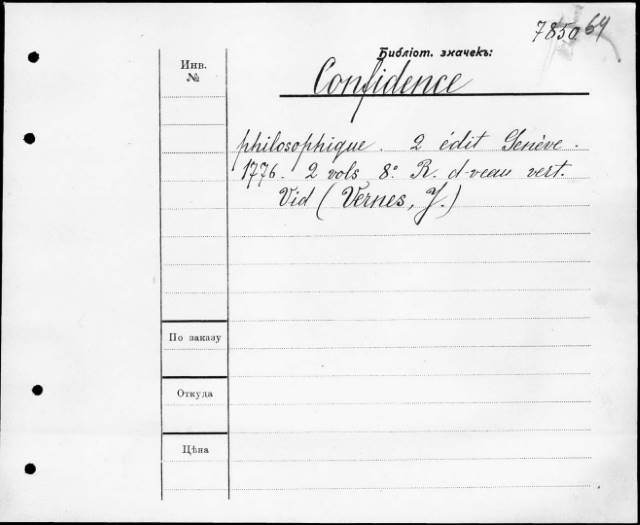 7850 64
Библіот. значекъ:
Инв.
№
Confidence
philosophique. 2 édit Genève.
1776. 2 vols 8º R. d-veau vert.
Vid (Vernes, J.)
По заказу
Откуда
Цѣна